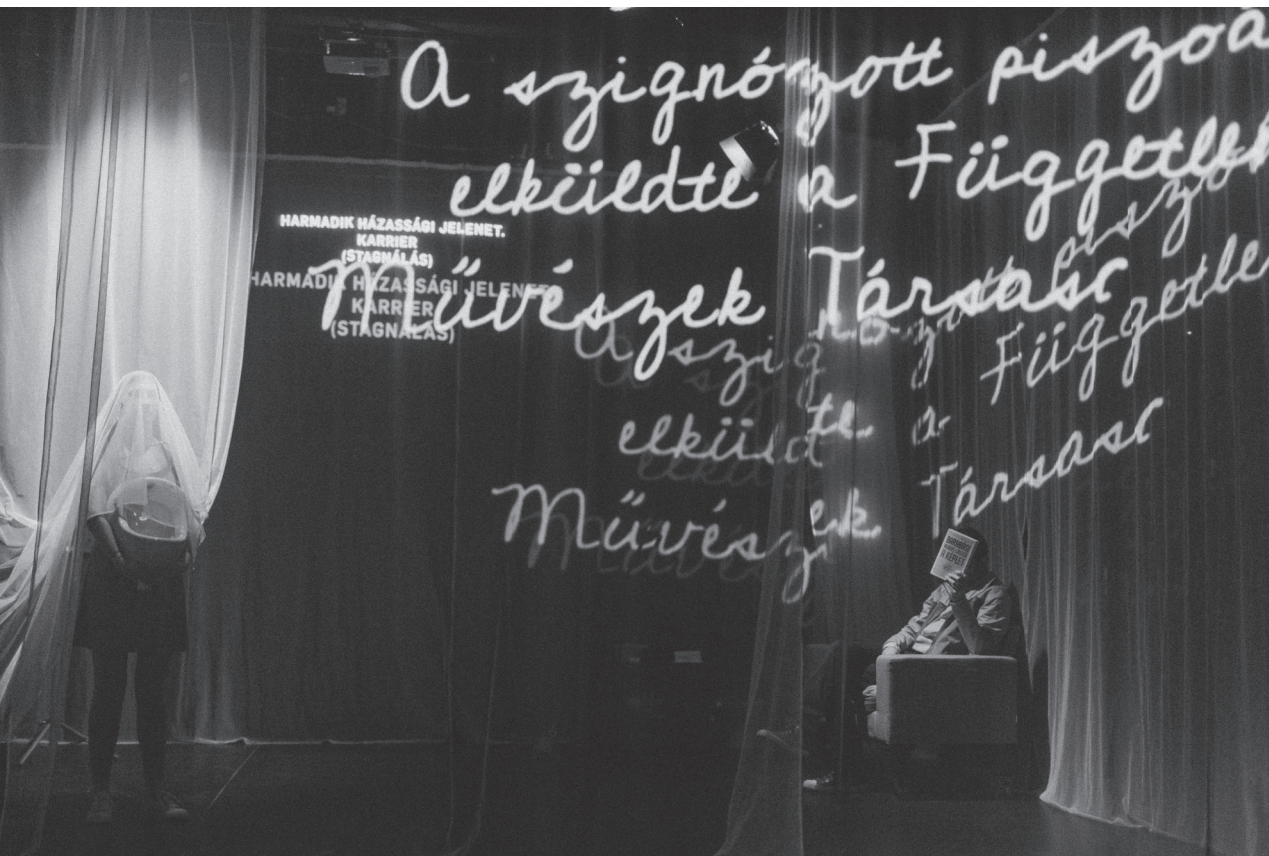 A szignózott piszoá
elküldte a Független
Művészek Társas
HARMADIK HÁZASSÁGI JELENET.
KARRIER
(STAGNÁLÁS)
HARMADIK HÁZASSÁGI JELENET.
KARRIER
(STAGNÁLÁS)
A szig
elküldte a Függetle
Művészek Társas
A KÉPLET